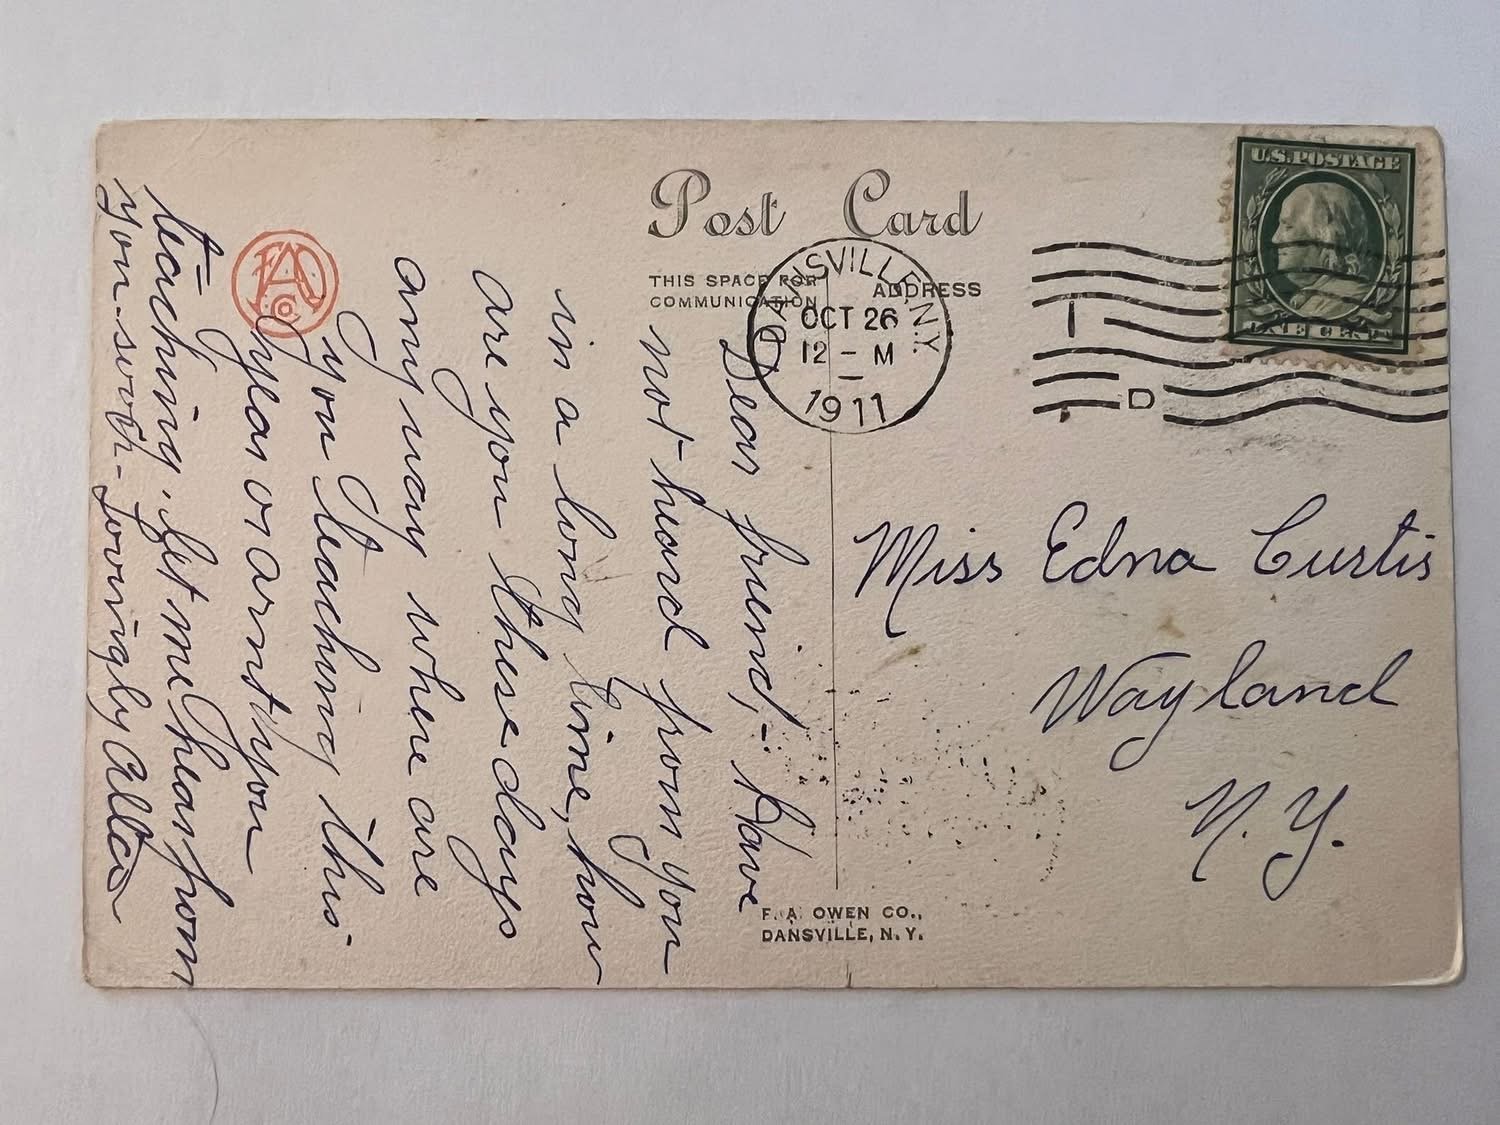 Post Card
THIS SPACE FOR
COMMUNICATION
ADDRESS
DANSVILLE, N.Y.
OCT 26
12 - M
1911
U.S. POSTAGE
1
D
Miss Edna Curtis
Wayland
N. Y.
Dear friend,- Have
not heard from you
in a long time, how
are you these days
any way where are
you teaching this
year or arnt you
teaching. Let me hear from
you soon - Lovingly Alta
F. A. OWEN CO.,
DANSVILLE, N. Y.